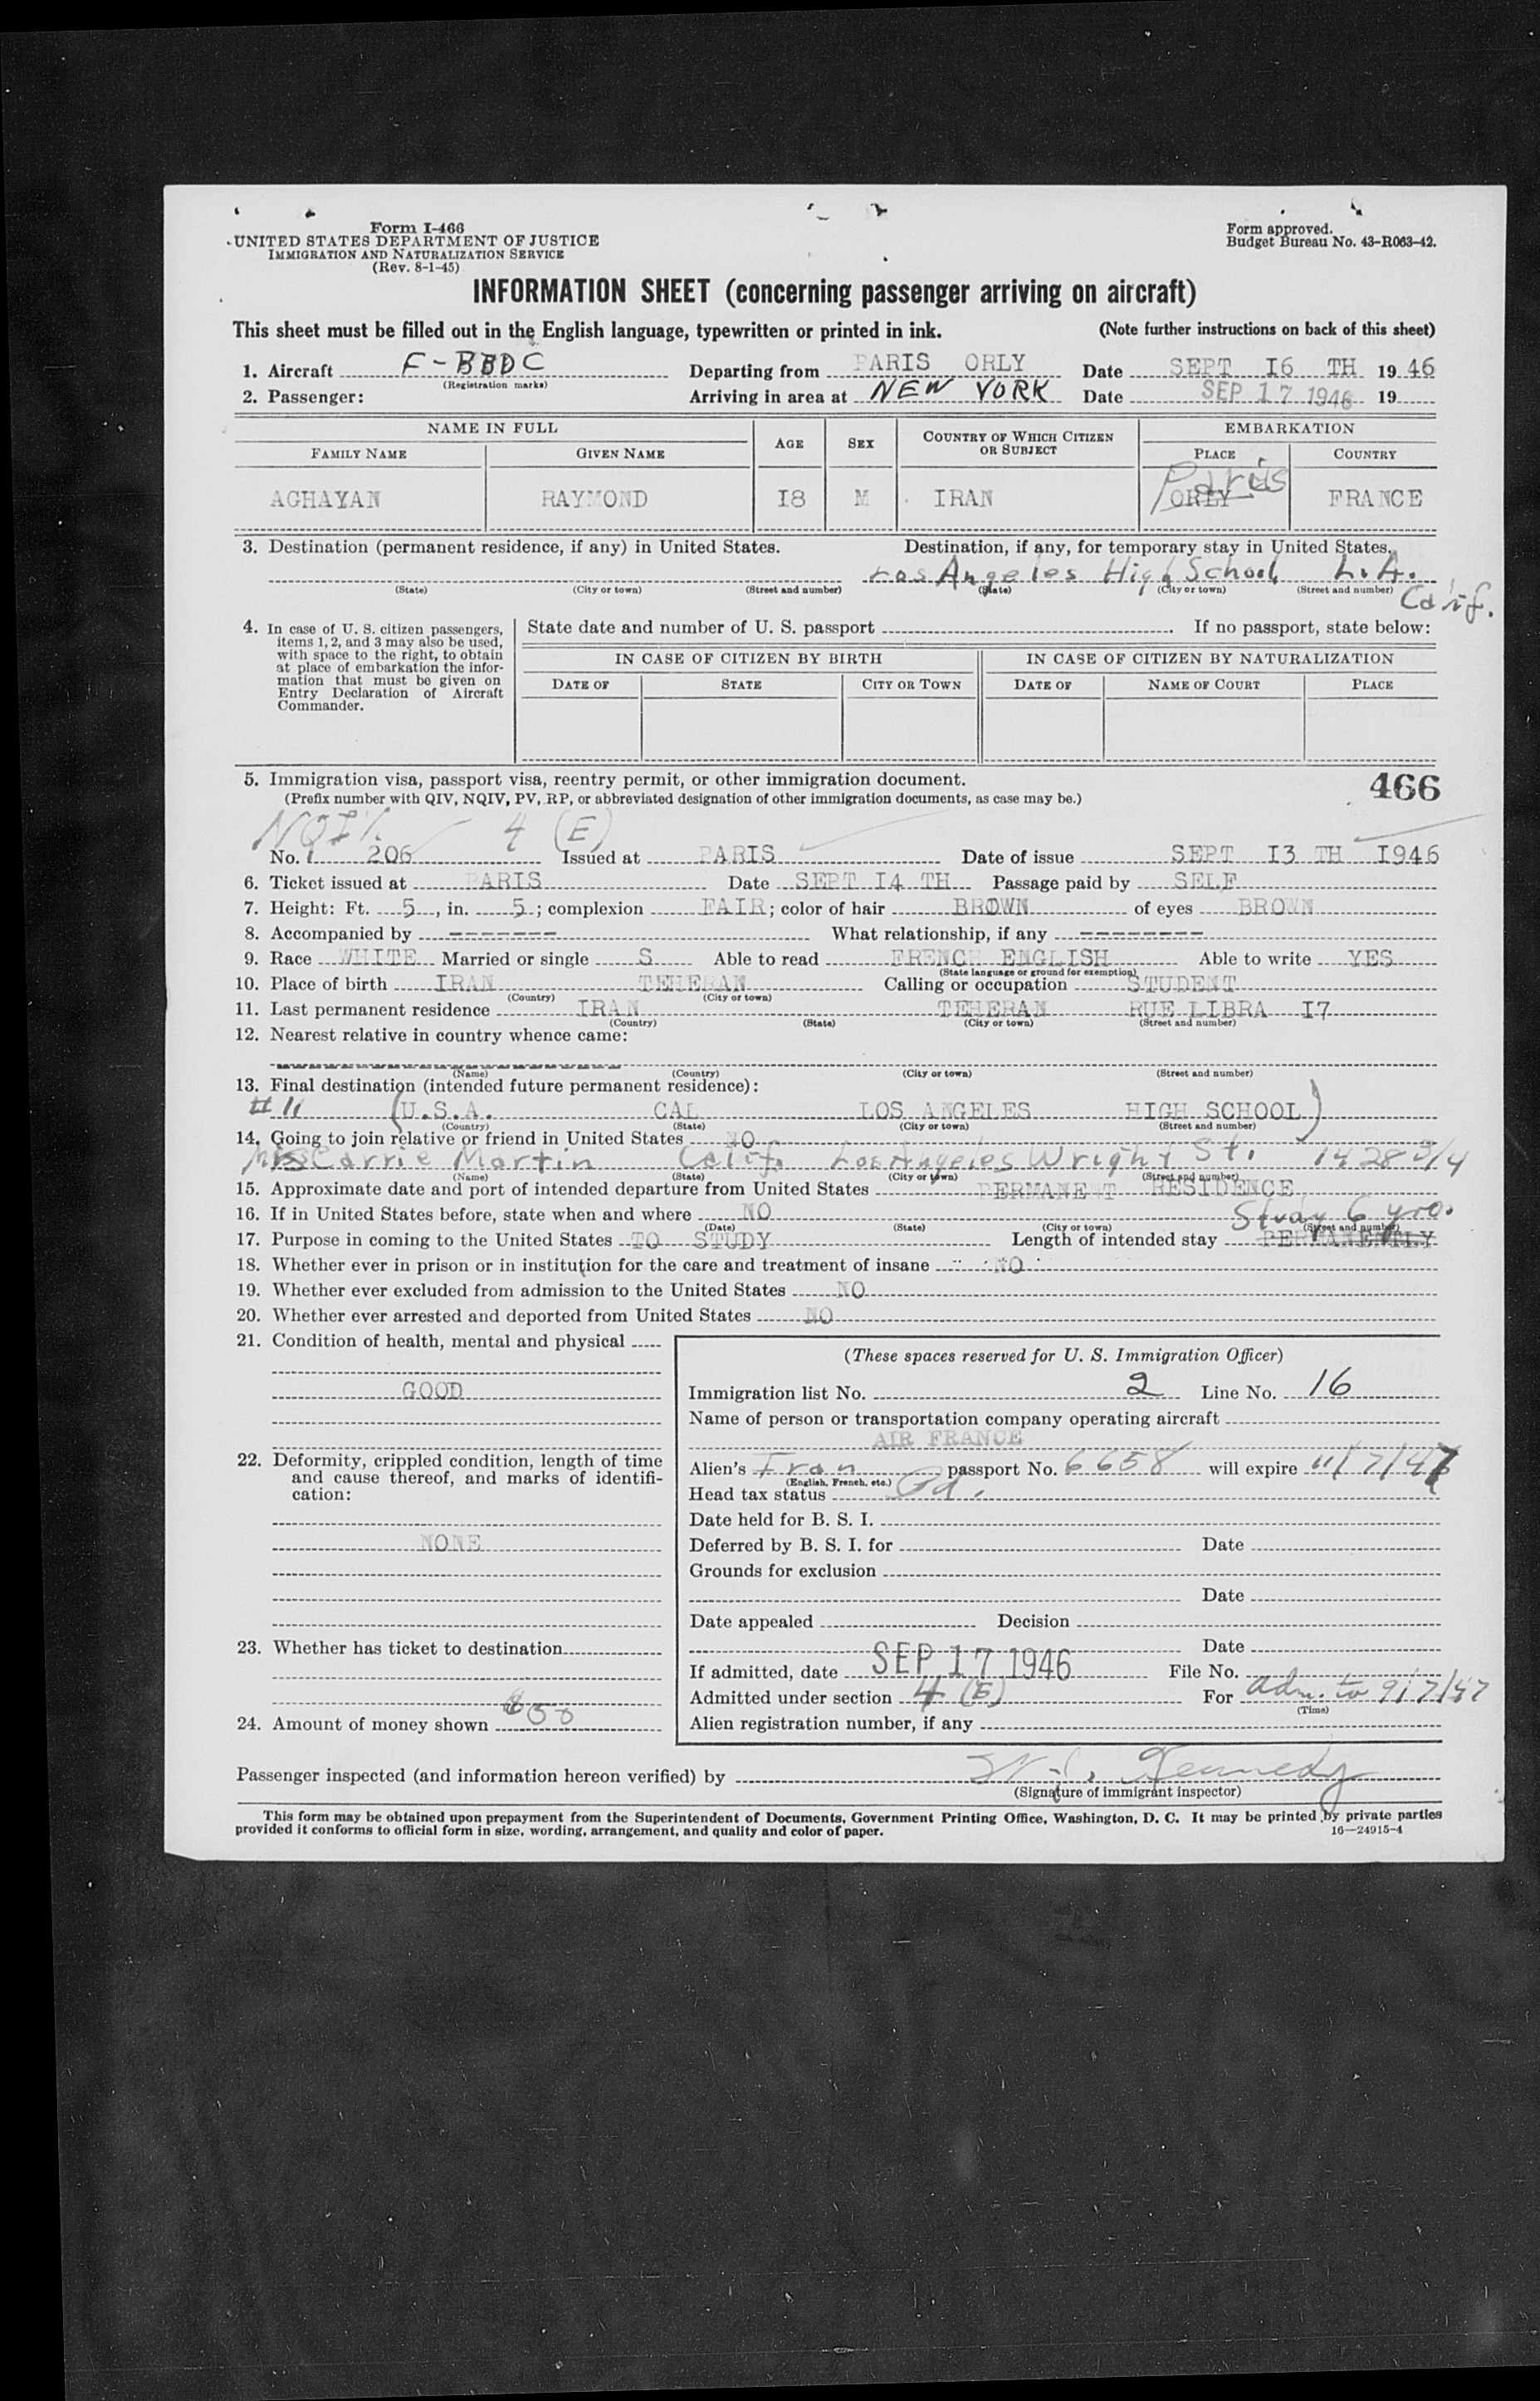 Form I-466
UNITED STATES DEPARTMENT OF JUSTICE
IMMIGRATION AND NATURALIZATION SERVICE
(Rev. 8-1-45)
Form approved.
Budget Bureau No. 43-R063-42.
INFORMATION SHEET (concerning passenger arriving on aircraft)
This sheet must be filled out in the English language, typewritten or printed in ink. (Note further instructions on back of this sheet)
1. Aircraft F-BBDC Departing from PARIS ORLY Date SEPT I6 TH 19 46
(Registration marks)
2. Passenger: Arriving in area at NEW YORK Date SEP 17 1946 19
NAME IN FULL AGE SEX COUNTRY OF WHICH CITIZEN OR SUBJECT EMBARKATION
FAMILY NAME GIVEN NAME PLACE COUNTRY
Paris
AGHAYAN RAYMOND I8 M IRAN ORLY FRANCE
3. Destination (permanent residence, if any) in United States. Destination, if any, for temporary stay in United States.
Los Angeles High School L.A. Calif.
(State) (City or town) (Street and number) (State) (City or town) (Street and number)
4. In case of U. S. citizen passengers, items 1, 2, and 3 may also be used, with space to the right, to obtain at place of embarkation the information that must be given on Entry Declaration of Aircraft Commander.
State date and number of U. S. passport If no passport, state below:
IN CASE OF CITIZEN BY BIRTH IN CASE OF CITIZEN BY NATURALIZATION
DATE OF STATE CITY OR TOWN DATE OF NAME OF COURT PLACE
5. Immigration visa, passport visa, reentry permit, or other immigration document. 466
(Prefix number with QIV, NQIV, PV, RP, or abbreviated designation of other immigration documents, as case may be.)
NQIV 4 (E)
No. 206 Issued at PARIS Date of issue SEPT I3 TH I946
6. Ticket issued at PARIS Date SEPT I4 TH Passage paid by SELF
7. Height: Ft. 5, in. 5; complexion FAIR; color of hair BROWN of eyes BROWN
8. Accompanied by ------- What relationship, if any --------
9. Race WHITE Married or single S Able to read FRENCH ENGLISH Able to write YES
(State language or ground for exemption)
10. Place of birth IRAN TEHERAN Calling or occupation STUDENT
(Country) (City or town)
11. Last permanent residence IRAN TEHERAN RUE LIBRA I7
(Country) (State) (City or town) (Street and number)
12. Nearest relative in country whence came:
(Name) (Country) (City or town) (Street and number)
13. Final destination (intended future permanent residence):
# 11 (U.S.A. CAL LOS ANGELES HIGH SCHOOL)
(Country) (State) (City or town) (Street and number)
14. Going to join relative or friend in United States NO
Carrie Martin Calif. Los Angeles Wright St. 1428 3/4
(Name) (State) (City or town) (Street and number)
15. Approximate date and port of intended departure from United States PERMANENT RESIDENCE
16. If in United States before, state when and where NO
(Date) (State) (City or town) (Street and number)
Study 6 yrs.
17. Purpose in coming to the United States TO STUDY Length of intended stay PERMANENTLY
18. Whether ever in prison or in institution for the care and treatment of insane NO
19. Whether ever excluded from admission to the United States NO
20. Whether ever arrested and deported from United States NO
21. Condition of health, mental and physical
GOOD
22. Deformity, crippled condition, length of time and cause thereof, and marks of identification:
NONE
23. Whether has ticket to destination
24. Amount of money shown
(These spaces reserved for U. S. Immigration Officer)
Immigration list No. 2 Line No. 16
Name of person or transportation company operating aircraft
AIR FRANCE
Alien's Iran passport No. 6658 will expire 11/7/47
(English, French, etc.)
Head tax status Pd.
Date held for B. S. I.
Deferred by B. S. I. for Date
Grounds for exclusion
Date
Date appealed Decision
Date
If admitted, date SEP 17 1946 File No.
Admitted under section 4 (E) For adm. to 9/7/47
(Time)
Alien registration number, if any
Passenger inspected (and information hereon verified) by Kennedy
(Signature of immigrant inspector)
This form may be obtained upon prepayment from the Superintendent of Documents, Government Printing Office, Washington, D. C. It may be printed by private parties
provided it conforms to official form in size, wording, arrangement, and quality and color of paper. 16—24915-4